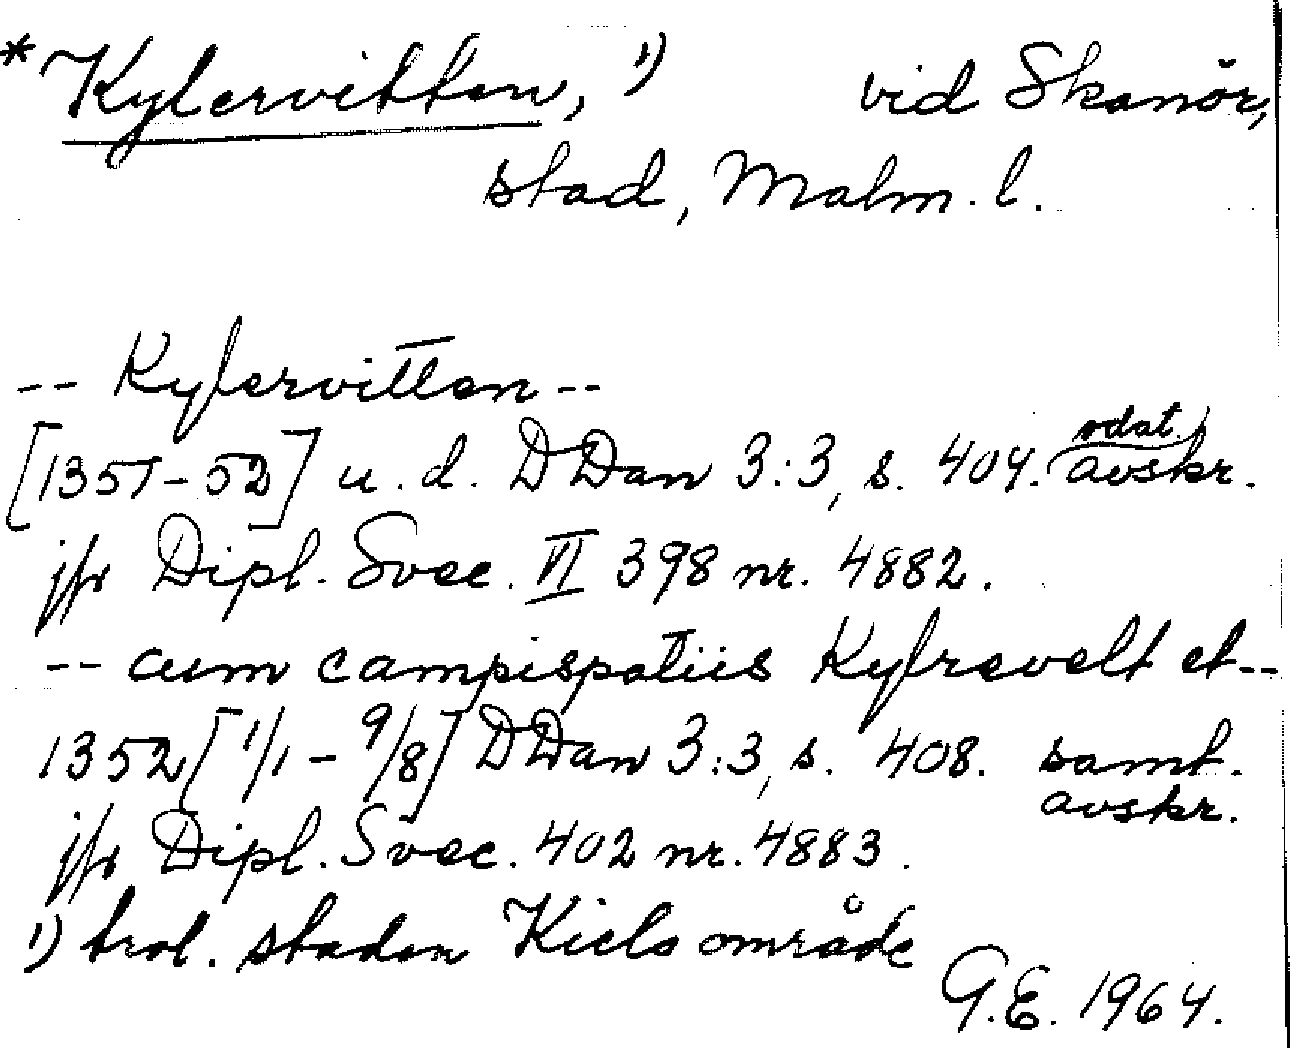 *Kylervitten, 1) vid Skanör,
stad, Malm. l.
-- Kylervitten --
[1351-52] u. d. DDan 3:3, s. 404. odat. avskr.
jfr Dipl. Svec. VI 398 nr. 4882.
-- cum campispatiis Kylrevelt et --
1352 [1/1 - 9/8] DDan 3:3, s. 408. samt. avskr.
jfr Dipl. Svec. 402 nr. 4883.
1) trol. staden Kiels område
G.E. 1964.